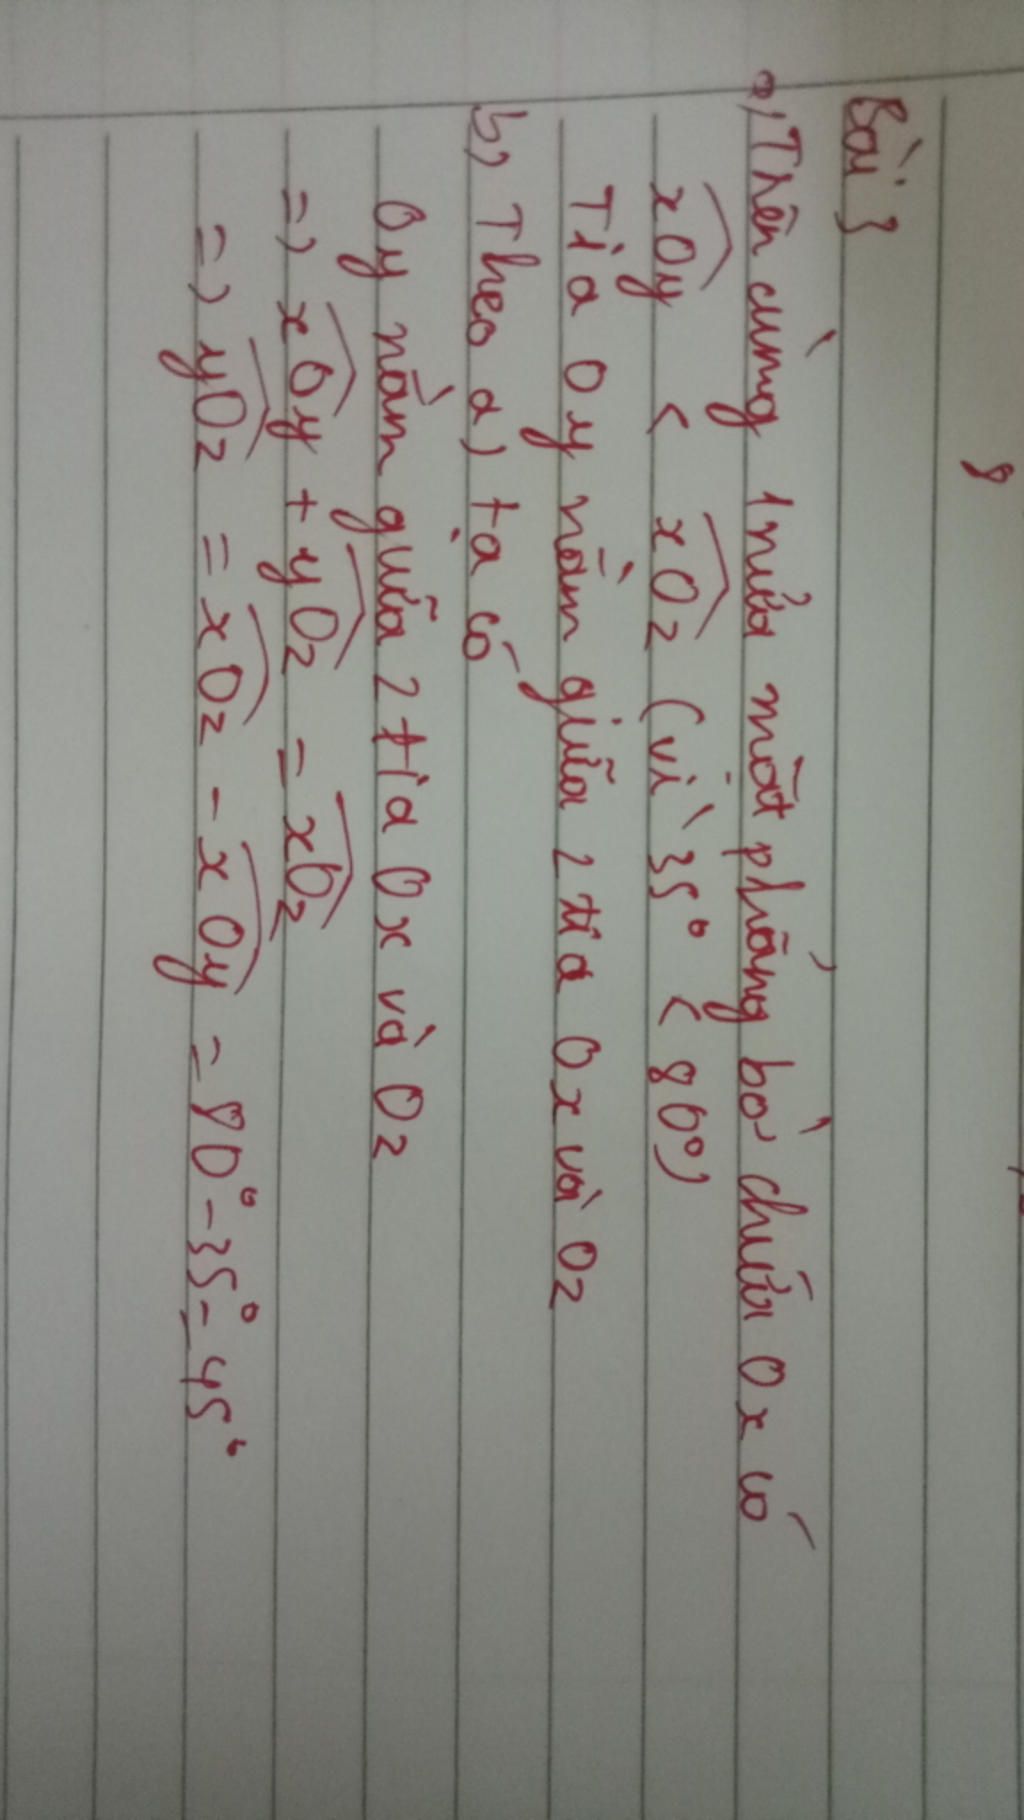 8
Bài 3
a, Trên cùng 1 nửa mặt phẳng bờ chứa Ox có
xOy < xOz (vì 35° < 80°)
Tia Oy nằm giữa 2 tia Ox và Oz
b, Theo a) ta có
Oy nằm giữa 2 tia Ox và Oz
=> xOy + yOz = xOz
=> yOz = xOz - xOy = 80° - 35° = 45°